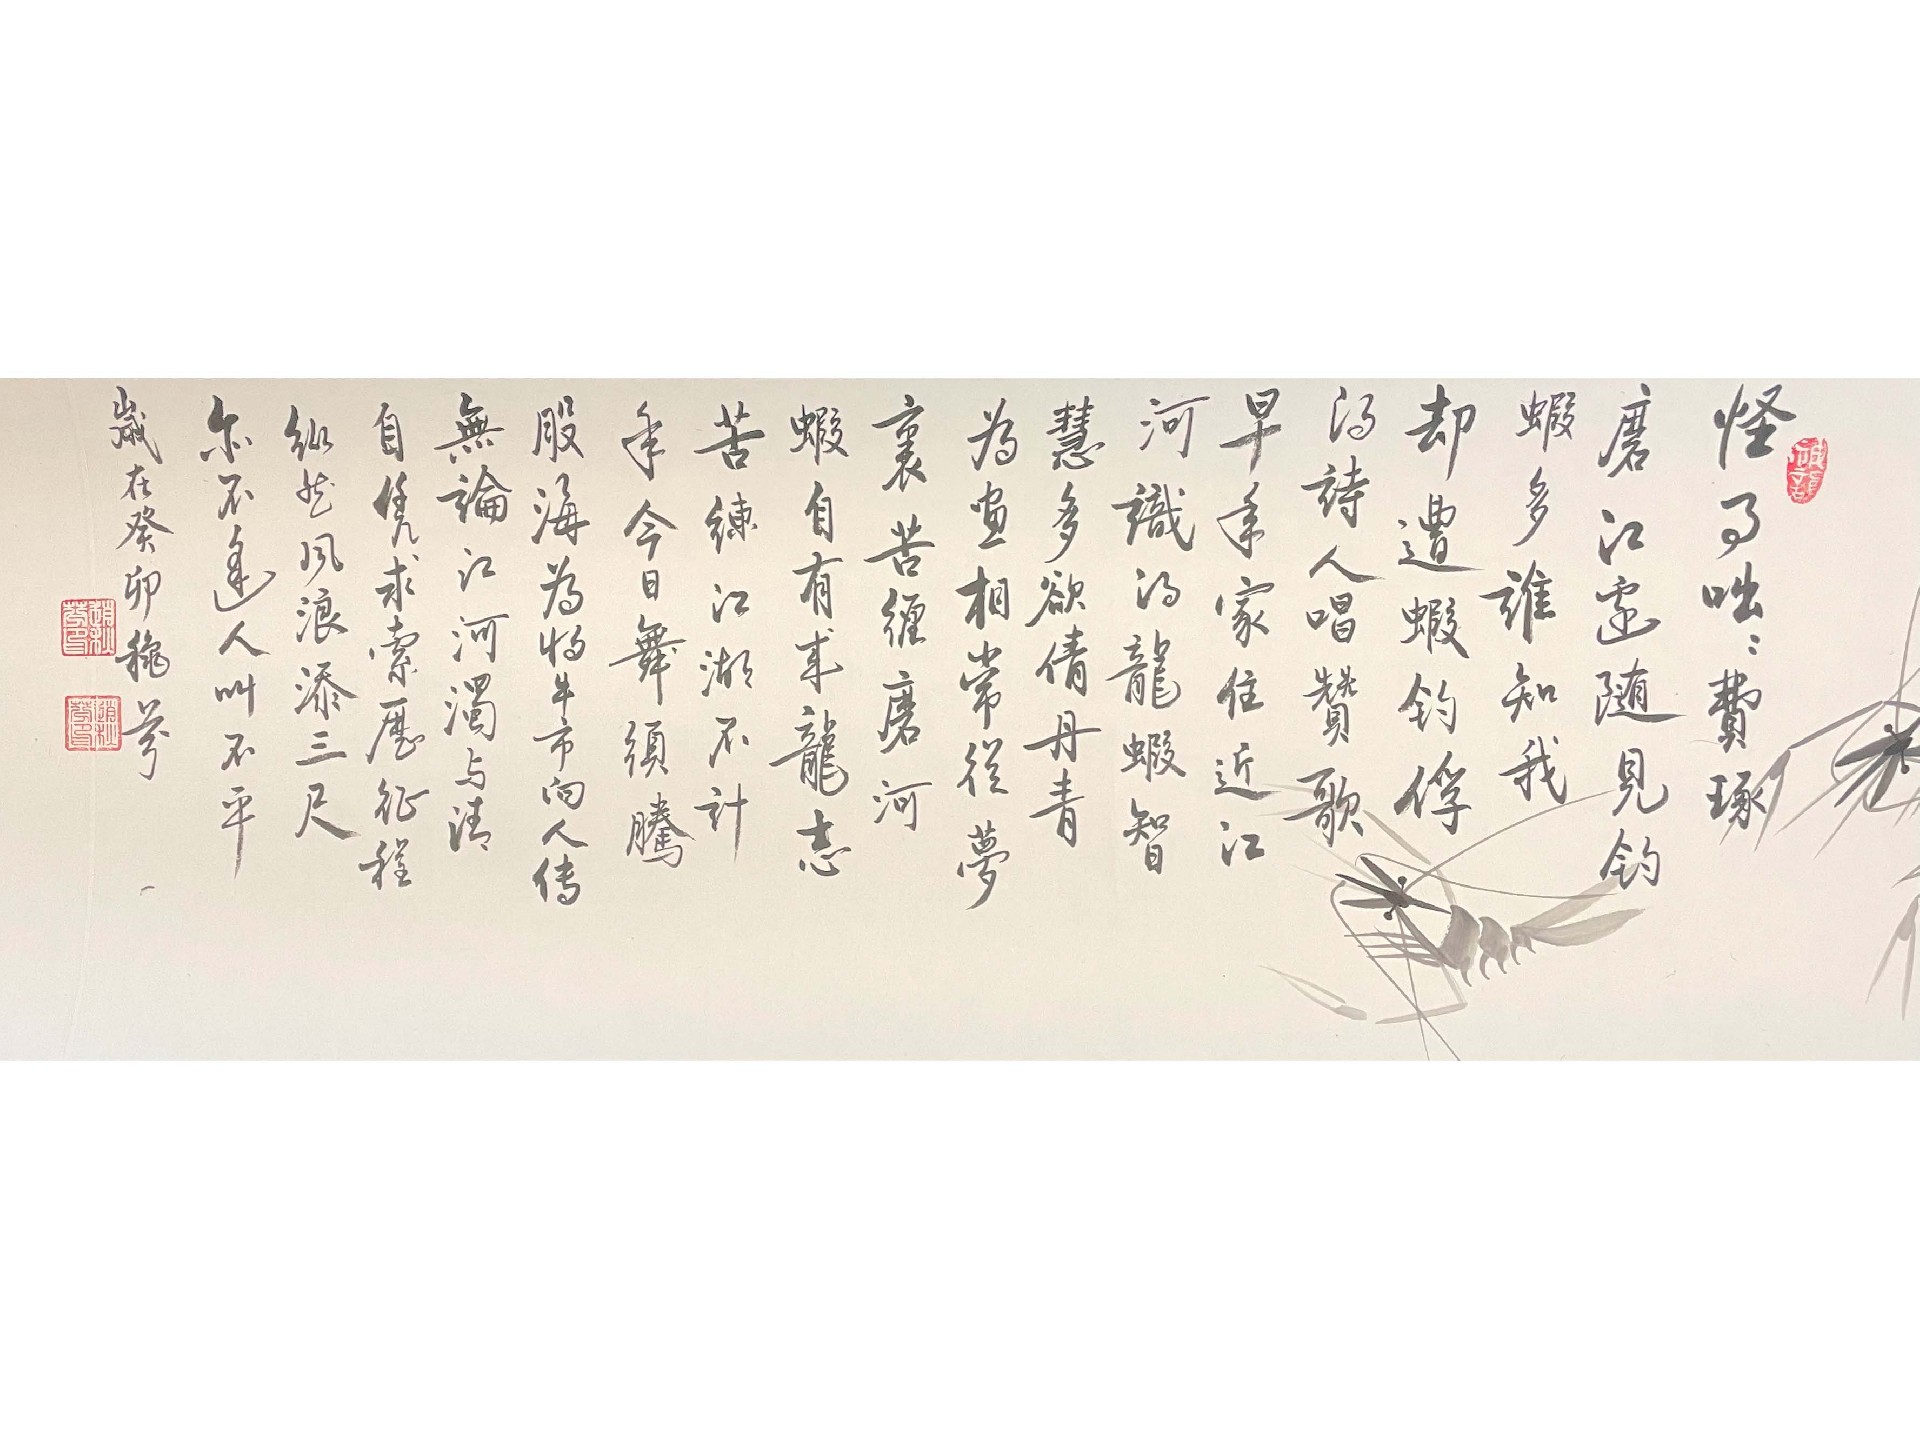 怪事咄〻費琢
磨江邊随見釣
蝦多誰知我
却遭蝦釣俘
得詩人唱贊歌
早年家住近江
河識得龍蝦智
慧多欲倩丹青
為畫相常從夢
裏苦纏磨河
蝦自有成龍志
苦練江湖不計
年今日舞須騰
股海為將牛市向人傳
無論江河濁与清
自凭求索歷征程
縱然風浪添三尺
尔不逢人叫不平
歲在癸卯穐芬